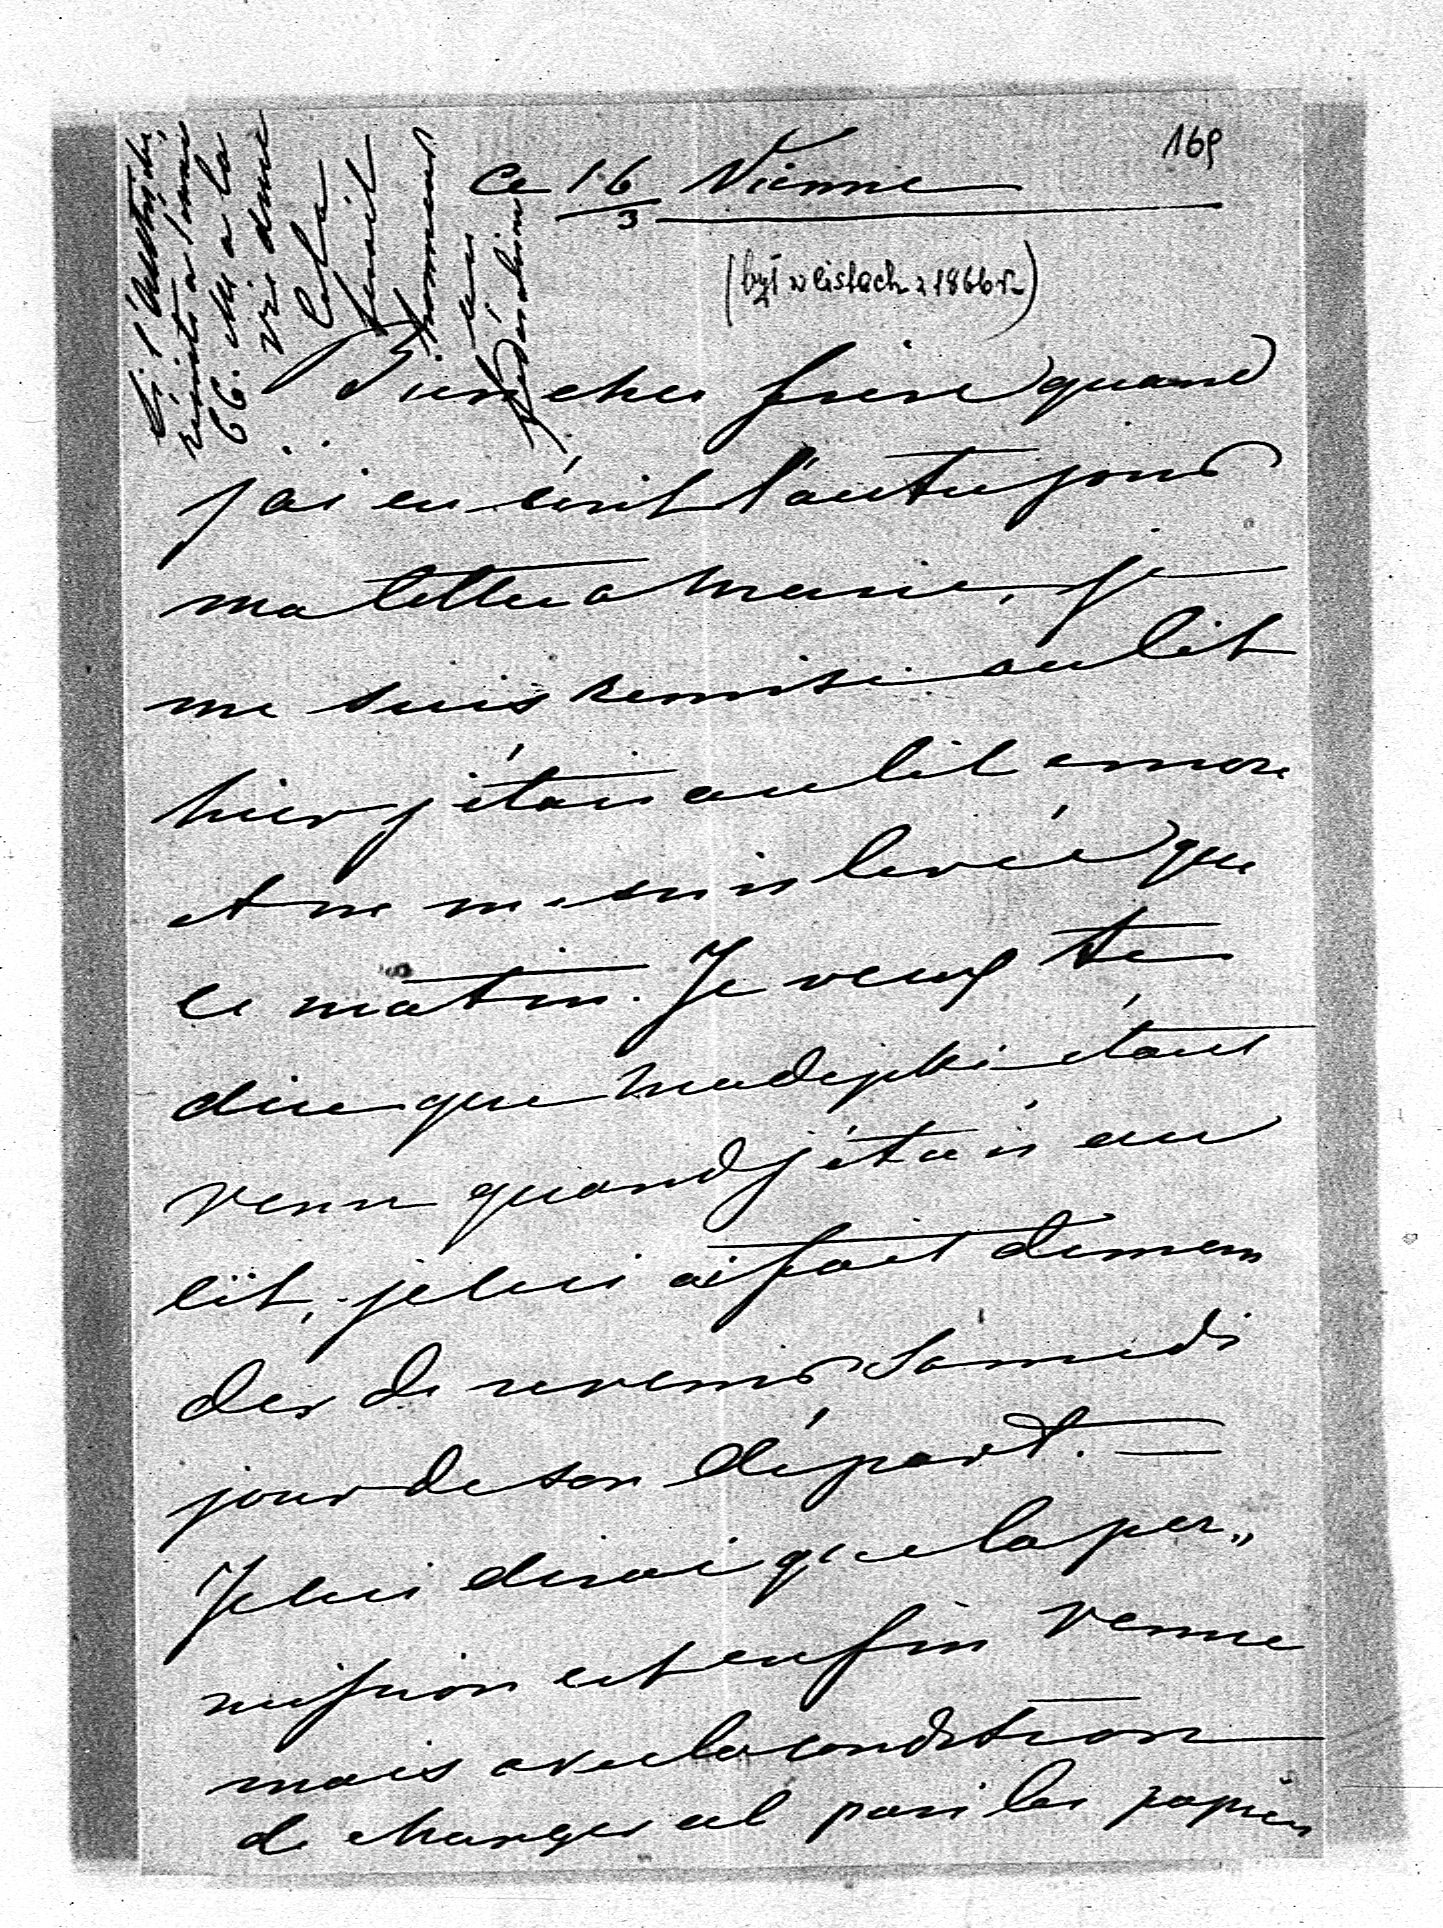 169
Ce 16/3 Vienne
(był w listach z 1866 r.)
Bien cher frère quand
j'ai eu écrit l'autre jour
ma lettre a Marie, je
me suis remise au lit
hier j'étais au lit encore
et ne me suis levée que
ce matin. Je veux te
dire que
étant
venu quand j'étais au
lit, je lui ai fait deman
der de revenir Samedi
jour de son départ. —
Je lui dirai que la per„
mission est enfin venue
mais avec la condition
de changer al pari les papiers
Si l'Autriche
a la
vie dure
Cela
serait